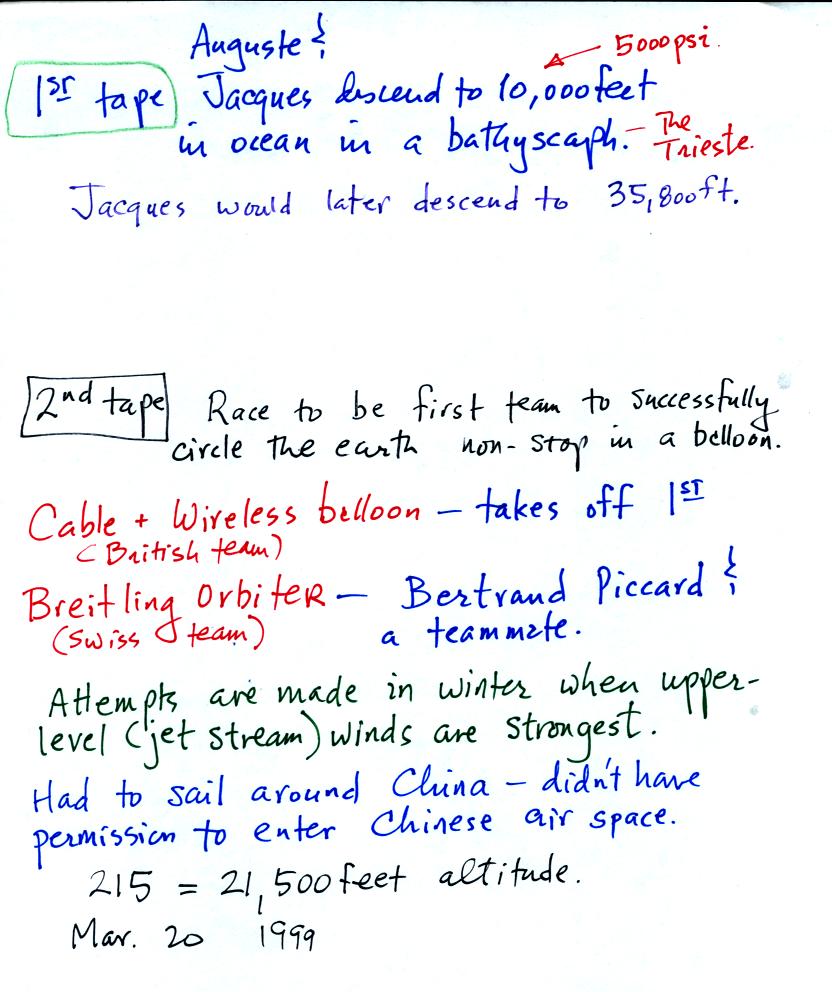 Auguste &
5000 psi.
1st tape Jacques descend to 10,000 feet
in ocean in a bathyscaph. – The Trieste.
Jacques would later descend to 35,800 ft.
2nd tape Race to be first team to successfully
circle the earth non-stop in a balloon.
Cable + Wireless balloon – takes off 1ST
(British team)
Breitling Orbiter – Bertrand Piccard &
(Swiss team) a teammate.
Attempts are made in winter when upper-
level (jet stream) winds are strongest.
Had to sail around China – didn't have
permission to enter Chinese air space.
215 = 21,500 feet altitude.
Mar. 20 1999